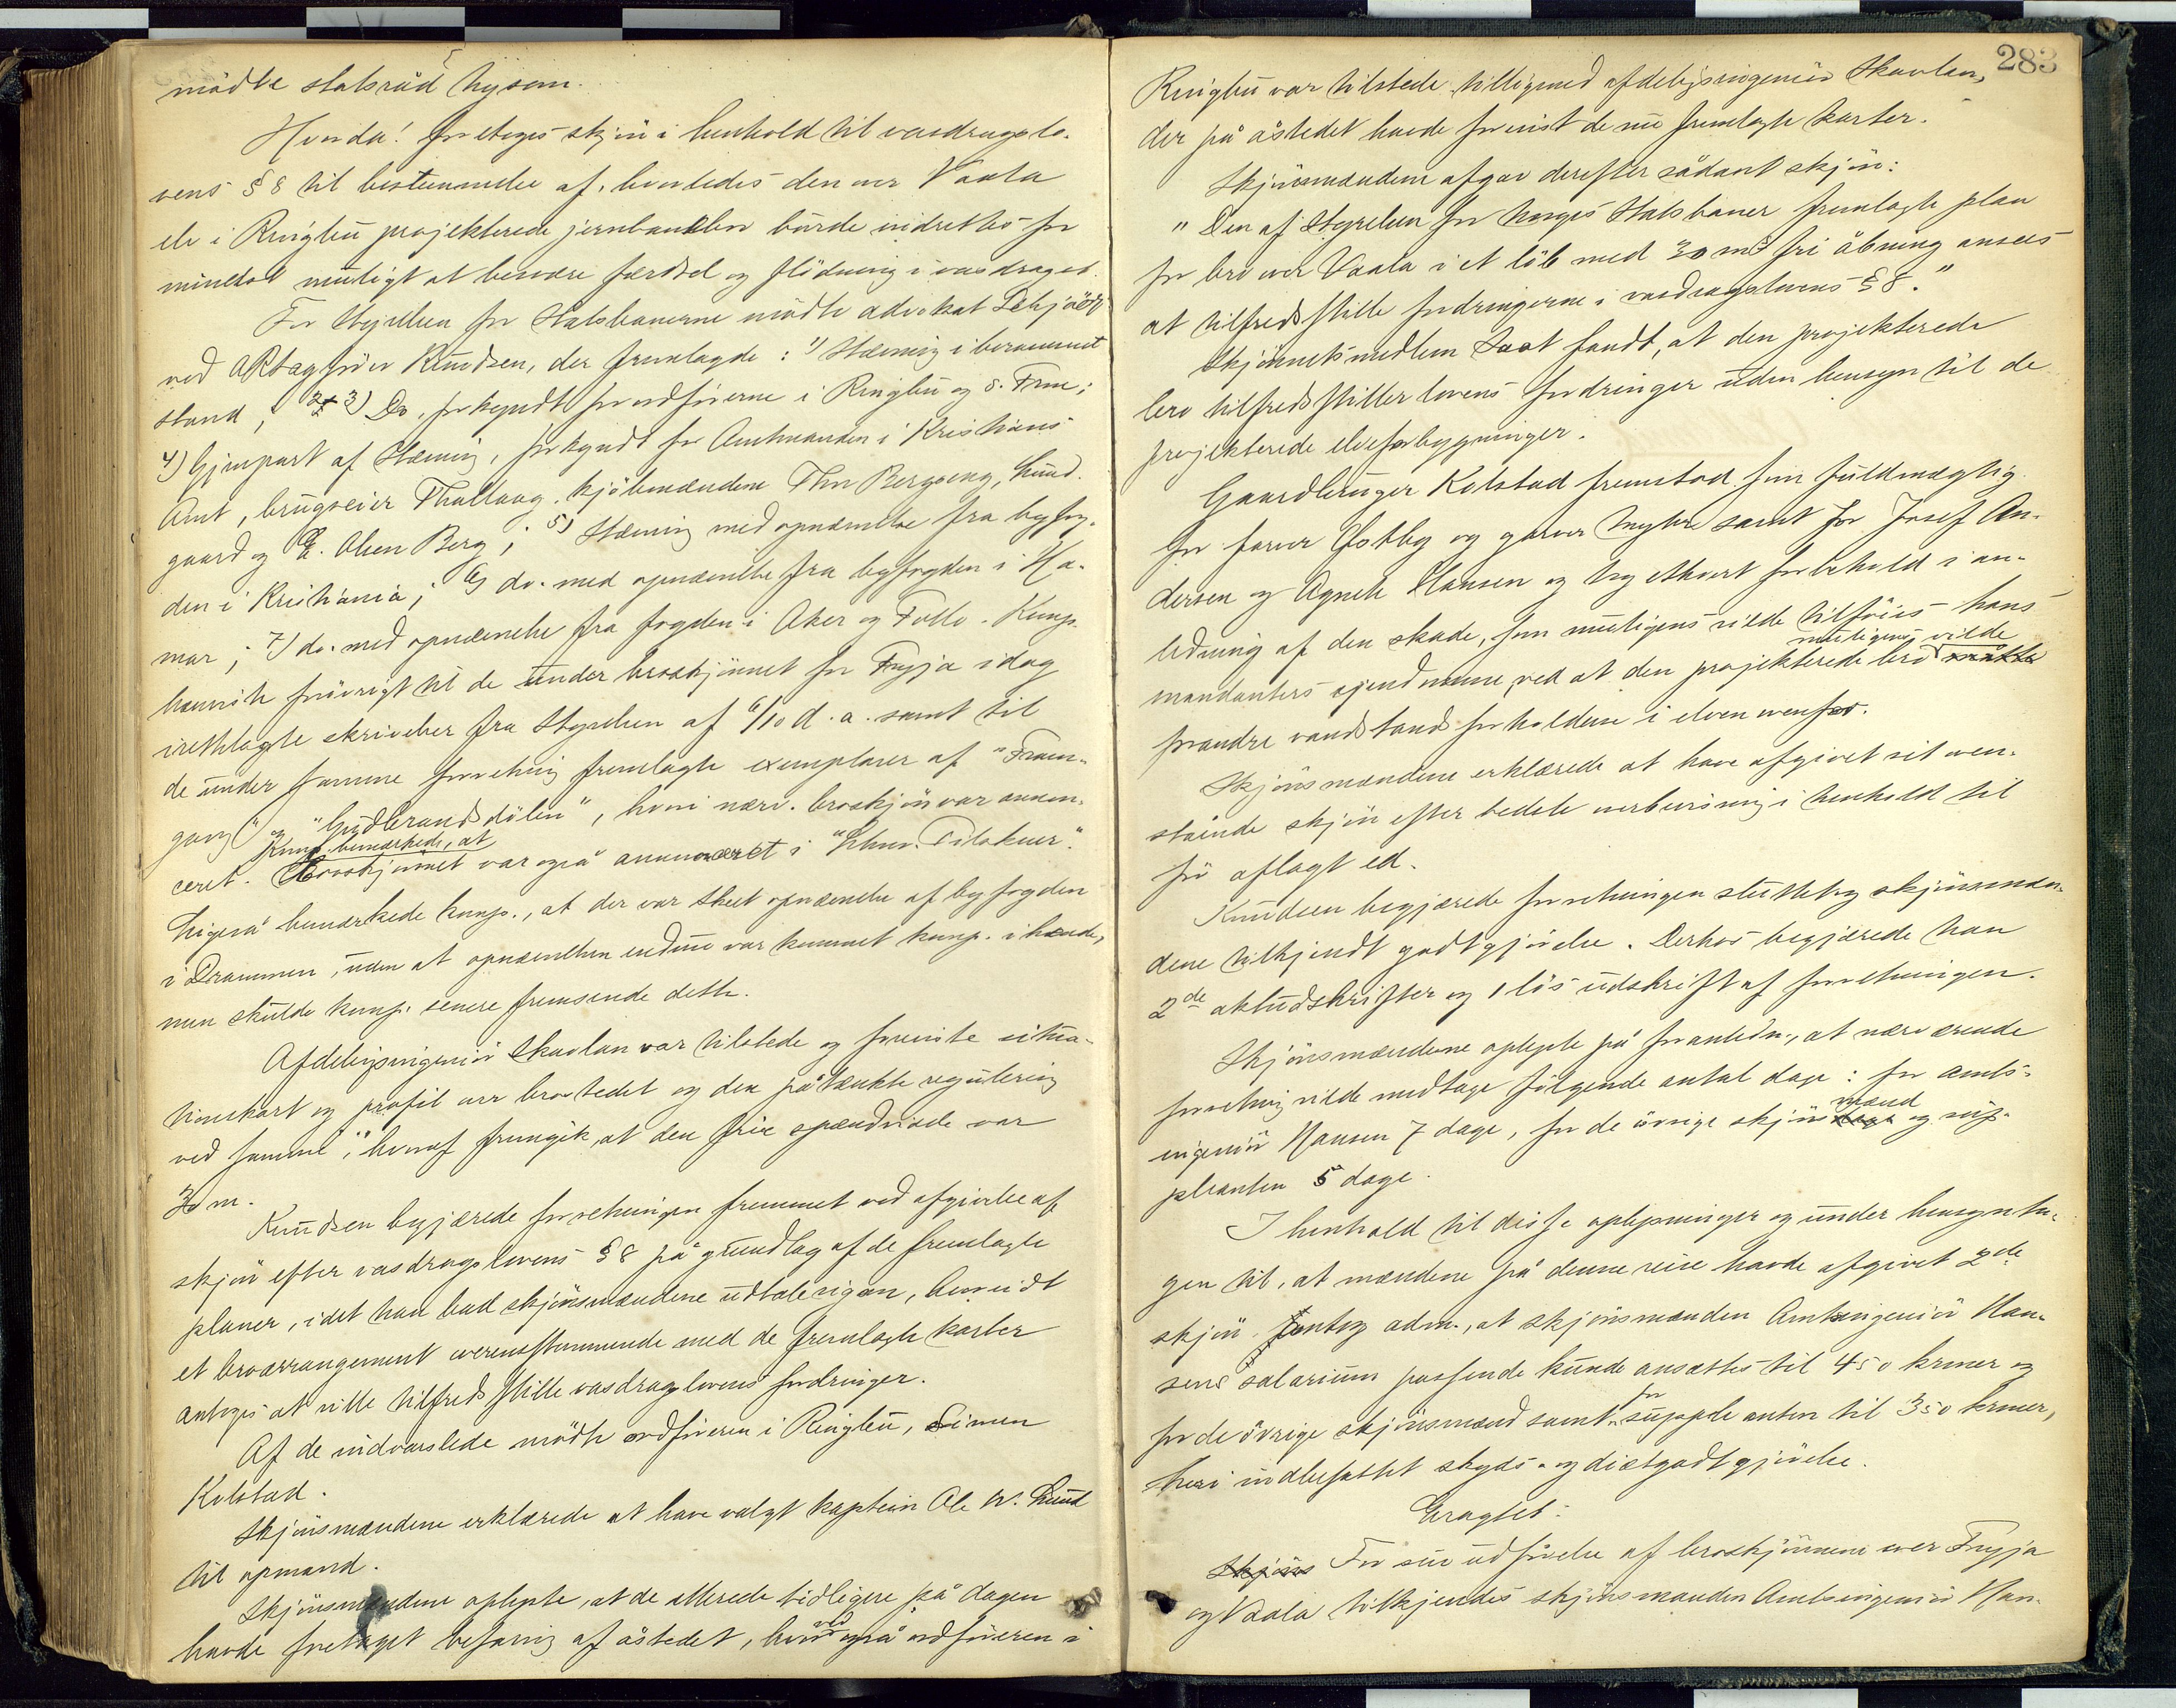 mödte statsråd Nysom.
Hvorda! foretoges skjön i henhold til vasdragslo-
vens § 8 til bestemmelse af, hvorledes den over Vaala
elv i Ringbu projekterede jernbanebro burde indrettes for
mindst muligt at besvære færdsel og flödning i vasdraget.
For Styrelsen for Statsbanerne mödte advokat
ved Knudsen, der fremlagde: 1) Stævning i berammet
stand; 2 & 3) Do, forkyndt for ordförerne i Ringbu og S. Fron;
4) Gjenpart af Stævning, forkyndt for Amtmanden i Kristians
Amt, brugseier Thallaug, kjöbmændene Thor Bergseng, Lund-
gaard og E. Olsen Berg; 5) Stævning med opnævnelse fra byfog-
den i Kristiania; 6) do. med opnævnelse fra byfogden i Ha-
mar; 7) do. med opnævnelse fra fogden i Aker og Follo. Komp.
henviste forövrigt til de under broskjönnet for Fryja idag
irettelagte skrivelser fra Styrelsen af 6/10 d. a. samt til
de under samme forretning fremlagte exemplarer af "Frem-
gang" og "Gudbrandsdölen", hvori nærv. broskjön var annon-
ceret. Komp. bemærkede, at Broskjönnet var også annonceret i "Lhmr. Tilskuer".
Ligeså bemærkede komp., at der var skeet opnævnelse af byfogden
i Drammen, uden at opnævnelsen endnu var kommet komp. i hænde,
men skulde komp. senere fremsende dette.
Afdelingsingeniör Skavlan var tilstede og foreviste situa-
tionskart og profil over brostedet og den påtænkte regulering
ved samme, hvoraf fremgik, at den frie spændvidde var
30 m.
Knudsen begjærede forretningen fremmet ved afgivelse af
skjön efter vasdragslovens § 8 på grundlag af de fremlagte
planer, idet han bad skjönsmændene udtale sig om, hvorvidt
et broarrangement overensstemmende med de fremlagte karter
antoges at ville tilfredsstille vasdragslovens fordringer.
Af de indvarslede mödte ordföreren i Ringbu, Simen
Kolstad.
Skjönsmændene erklærede at have valgt kaptein Ole W. Lund
til opmand.
Skjönsmændene oplyste, at de allerede tidligere på dagen
havde foretaget befaring af åstedet, hvorved også ordföreren i
283
Ringbu var tilstede tilligemed afdelingsingeniör Skavlan,
der på åstedet havde forevist de nu fremlagte karter.
Skjönsmændene afgav derefter sådant skjön:
"Den af Styrelsen for Norges Statsbaner fremlagte plan
for bro over Vaala i et löb med 30 m's fri åbning ansees
at tilfredsstille fordringerne i vasdragslovens § 8."
Skjönnets medlem fandt, at den projekterede
bro tilfredsstiller lovens fordringer uden hensyn til de
projekterede elveforbygninger.
Gaardbruger Kolstad fremstod som fuldmægtig
for farver Östby og garver Myhre samt for Josef An-
dersen og Agnete Hansen og tog ethvert forbehold i an-
ledning af den skade, som muligens vilde tilföies hans
mandanters eiendomme, ved at den projekterede bro muligens vilde måtte
forandre vandstandsforholdene i elven ovenfor.
Skjönsmændene erklærede at have afgivet sit oven-
stående skjön efter bedste overbevisning i henhold til
för aflagt ed.
Knudsen begjærede forretningen sluttet og skjönsmæn-
dene tilkjendt godtgjörelse. Derhos begjærede han
2de aktudskrifter og 1 lös udskrift af forretningen.
Skjönsmændene oplyste på foranledn., at nærværende
forretning vilde medtage fölgende antal dage: for amts-
ingeniör Hansen 7 dage, for de övrige skjönsmænd og sup-
pleanten 5 dage.
I henhold til disse oplysninger og under hensynta-
gen til, at mændene på denne reise havde afgivet 2de
skjön, fandtog adm., at skjönsmanden Amtsingeniör Han-
sens salarium passende kunde ansættes til 450 kroner og
for de övrige skjönsmænd samt for suppleanten til 350 kroner,
heri indbefattet skyds- og diætgodtgjörelse.
Eragtet:
Skjöns For sin udförelse af broskjönnene over Fryja
og Vaala tilkjendes skjönsmanden Amtsingeniör Han-